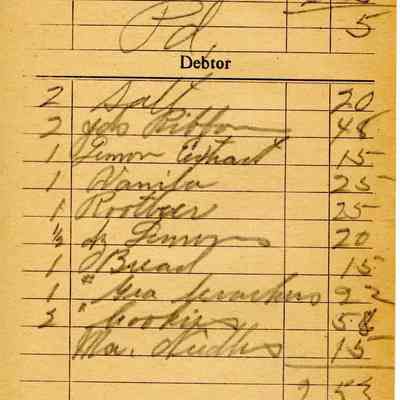 Pd, 5
Debtor
2 Salt 20
2 yds Ribbon 48
1 Lemon Extract 15
1 Vanila 25
1 Rootbeer 25
½ dz Lemons 20
1 Bread 15
1 " Gra Crackers
2 " Cookies 58
Ma. Needles 15
2 53